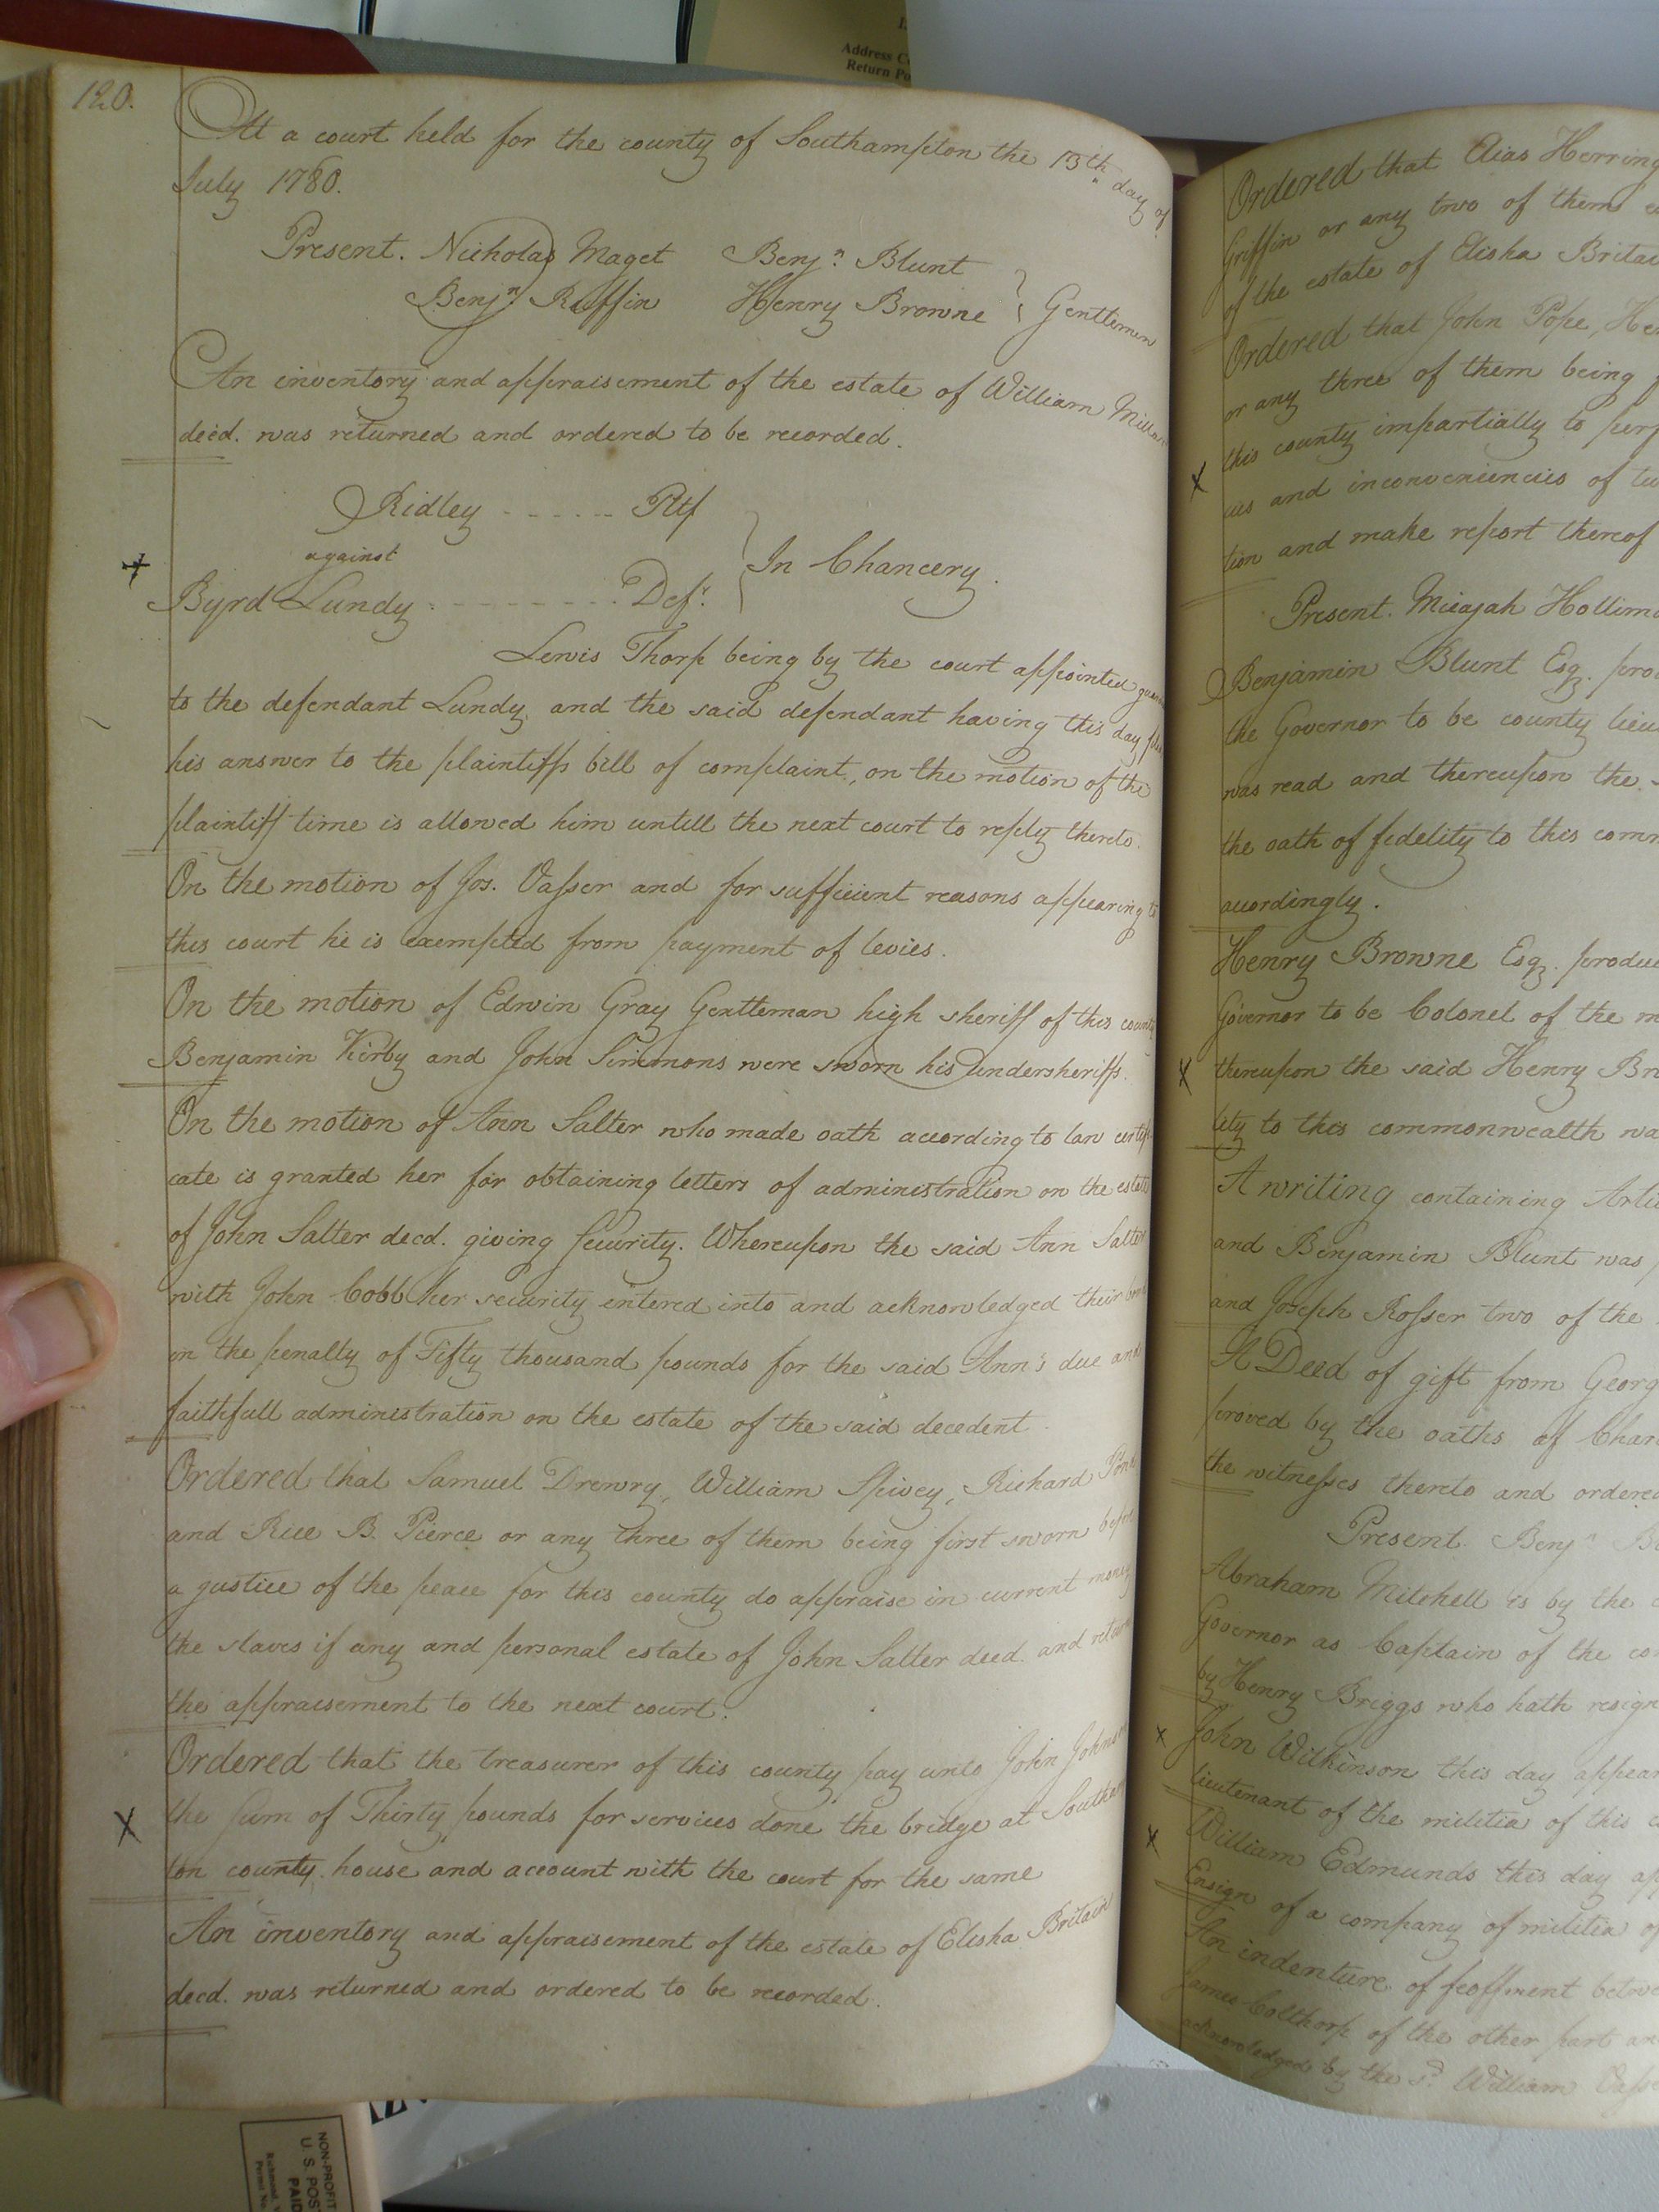 120.
At a court held for the county of Southampton the 13th day of
July 1780.
Present. Nicholas Maget Benjn. Blunt
Benjn. Ruffin Henry Browne } Gentlemen
An inventory and appraisement of the estate of William
decd. was returned and ordered to be recorded.
Ridley ------ Pltf
against
Byrd Lundy --------- Deft.
} In Chancery.
Lewis Thorp being by the court appointed
to the defendant Lundy, and the said defendant having this day
his answer to the plaintiffs bill of complaint, on the motion of the
plaintiff time is allowed him untill the next court to reply thereto.
On the motion of Jos. Vasser and for sufficient reasons appearing to
this court he is exempted from payment of levies.
On the motion of Edwin Gray Gentleman high sheriff of this county
Benjamin Kirby and John Simmons were sworn his undersheriffs.
On the motion of Ann Salter who made oath according to law certifi
cate is granted her for obtaining letters of administration on the estate
of John Salter decd. giving security. Whereupon the said Ann Salter
with John Cobb her security entered into and acknowledged their bond
in the penalty of Fifty thousand pounds for the said Ann's due and
faithfull administration on the estate of the said decedent.
Ordered that Samuel Drewry, William Spivey, Richard
and Rice B. Pierce or any three of them being first sworn before
a justice of the peace for this county do appraise in current money
the slaves if any and personal estate of John Salter decd. and return
the appraisement to the next court.
Ordered that the treasurer of this county pay unto John Johnson
the sum of Thirty pounds for services done the bridge at Southamp
ton county house and account with the court for the same
An inventory and appraisement of the estate of Elisha Britain
decd. was returned and ordered to be recorded.
Ordered that Elias Herring
Griffin or any two of them
of the estate of Elisha
Ordered that John Pope,
or any three of them being
this county impartially to
ies and inconveniencies of
tion and make report thereof
Present. Micajah
Benjamin Blunt Esq.
the Governor to be county
was read and thereupon the
the oath of fidelity to this
accordingly.
Henry Browne Esq.
Governor to be Colonel of the
thereupon the said Henry
lity to this commonwealth
A writing containing
and Benjamin Blunt was
and Joseph Rosser two of the
A Deed of gift from
proved by the oaths of
the witnesses thereto and
Present. Benjn
Abraham Mitchell is by the
Governor as Captain of the
by Henry Briggs who hath
John Wilkinson this day
lieutenant of the militia of this
William Edmunds this day
Ensign of a company of militia of
An indenture of feoffment
James Colthorp of the other part
acknowledged by the sd. William
Address
Return
NON-PROFIT
U. S.
PAID
Richmond,
Permit No.